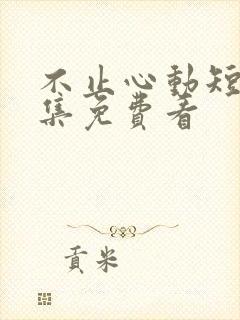 不止心動短
集免費看
貢米